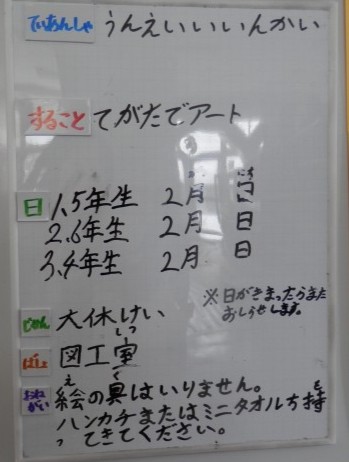 ていあんしゃ うんえいいいんかい
すること てがたでアート
日 1,5年生 2月 日
2,6年生 2月 日
3,4年生 2月 日
※日がきまったらまた
おしらせします。
じかん 大休けい
ばしょ 図工室
おねがい 絵の具はいりません。
ハンカチまたはミニタオルを持
ってきてください。